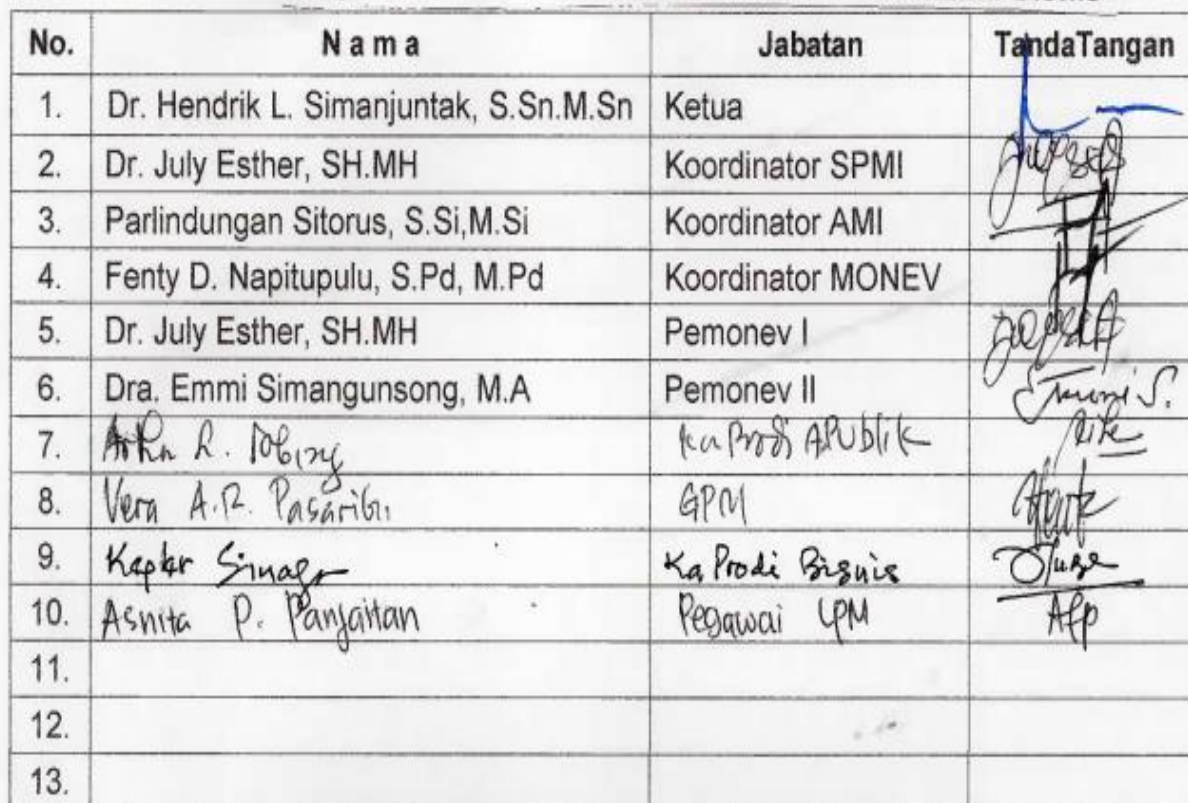 No. N a m a Jabatan TandaTangan
1. Dr. Hendrik L. Simanjuntak, S.Sn.M.Sn Ketua
2. Dr. July Esther, SH.MH Koordinator SPMI
3. Parlindungan Sitorus, S.Si,M.Si Koordinator AMI
4. Fenty D. Napitupulu, S.Pd, M.Pd Koordinator MONEV
5. Dr. July Esther, SH.MH Pemonev I
6. Dra. Emmi Simangunsong, M.A Pemonev II Emmi S.
7. Ka Prodi APUblik
8. Vera A.R. Pasaribu GPM
9. Sinaga Ka Prodi Bisnis
10. Asnita P. Panjaitan Pegawai LPM Afp
11.
12.
13.